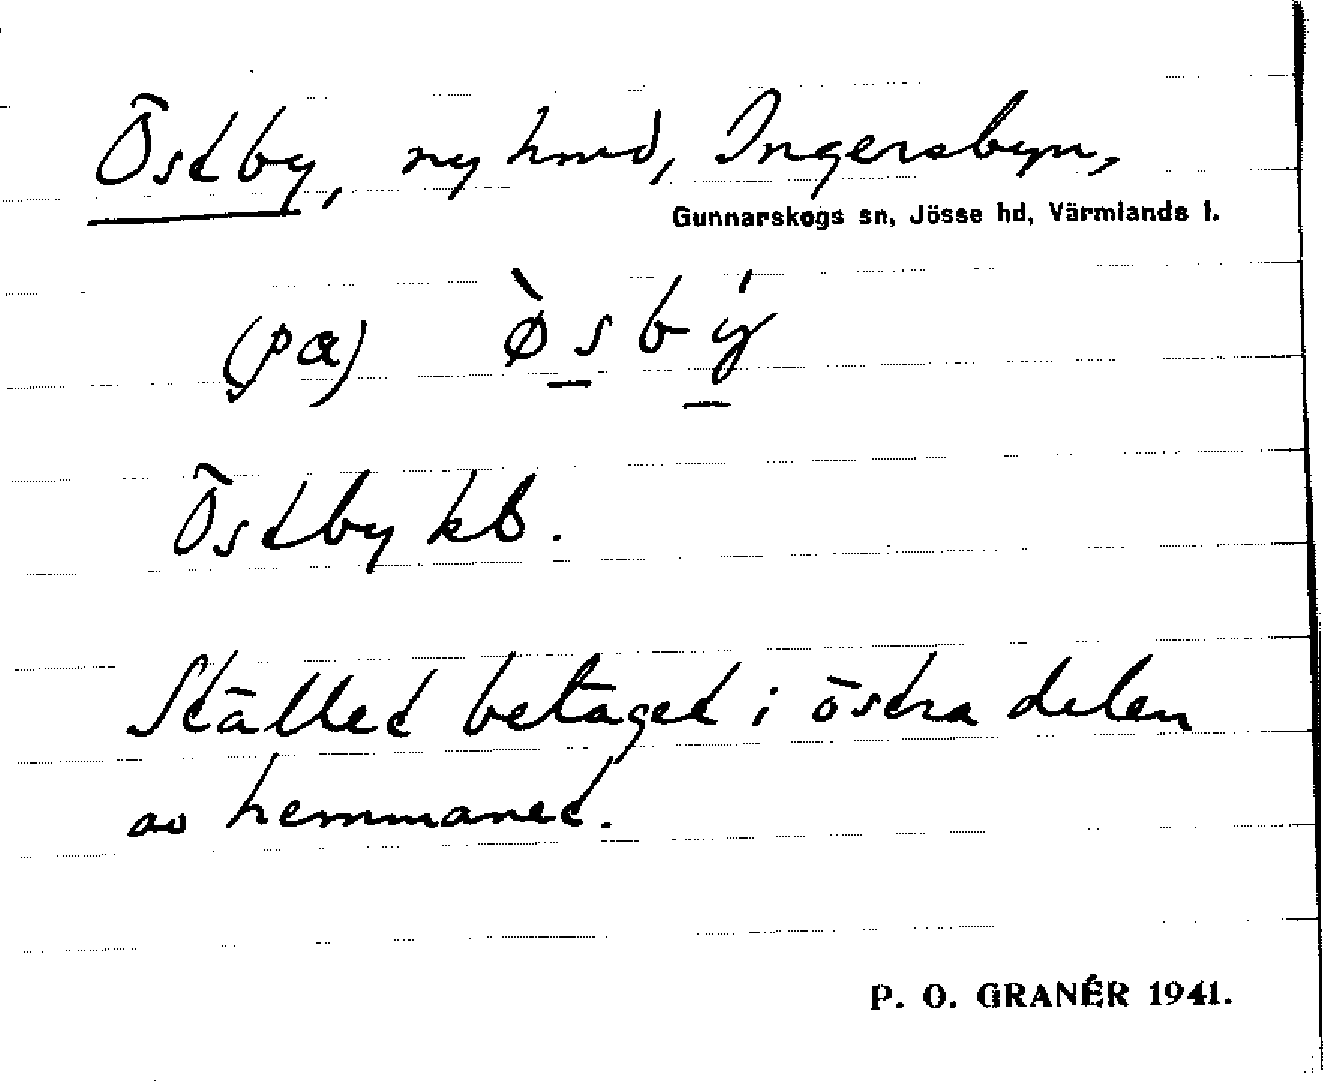 Östby, ny hmd, Ingersbyn,
Gunnarskogs sn, Jösse hd, Värmlands l.
(pα) ø̀sbý
Östby kb.
Stället beläget i östra delen
av hemmanet.
P. O. GRANÉR 1941.